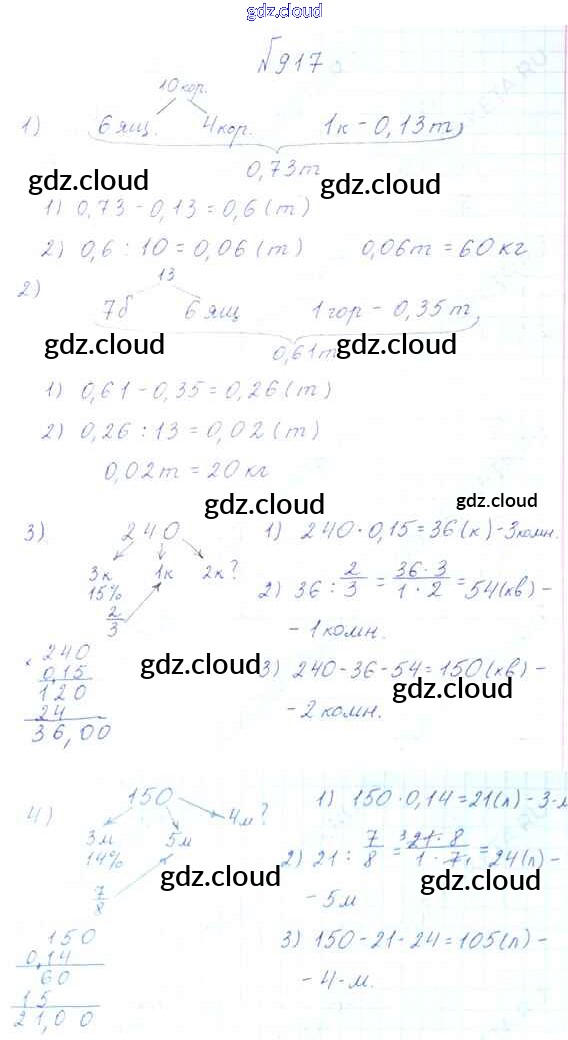 gdz.cloud
№917
10кор.
1) 6 ящ. 4кор. 1к - 0,13т,
0,73т
gdz.cloud gdz.cloud
1) 0,73 - 0,13 = 0,6 (т)
2) 0,6 : 10 = 0,06 (т) 0,06т = 60 кг
13
2) 7б 6 ящ 1гор - 0,35 т,
0,61т
gdz.cloud gdz.cloud
1) 0,61 - 0,35 = 0,26 (т)
2) 0,26 : 13 = 0,02 (т)
0,02т = 20кг
gdz.cloud gdz.cloud
3) 240 1) 240 · 0,15 = 36 (к) - 3комн.
3к 1к 2к?
15%
2/3
2) 36 : 2/3 = 36 · 3 / 1 · 2 = 54(кв) -
- 1комн.
240
× 0,15
120
24
36,00
gdz.cloud
3) 240 - 36 - 54 = 150 (кв) -
gdz.cloud
- 2 комн.
4) 150 4м? 1) 150 · 0,14 = 21(л) - 3-м
3м 5м
14%
7/8
2) 21 : 7/8 = 21 · 8 / 1 · 7 = 24(л) -
gdz.cloud gdz.cloud
- 5м
150
0,14
60
15
21,00
3) 150 - 21 - 24 = 105(л) -
- 4-м.
gdz.cloud gdz.cloud